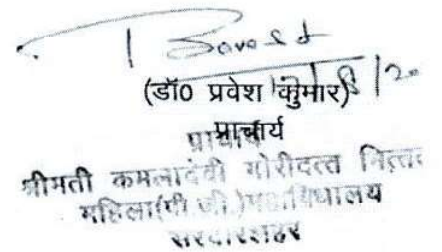 (डॉ0 प्रवेश कुमार)
प्राचार्य
प्राचार्य
श्रीमती कमलादेवी गोरीदत्त मित्तल
महिला(पी.जी.)महाविधालय
सरदारशहर